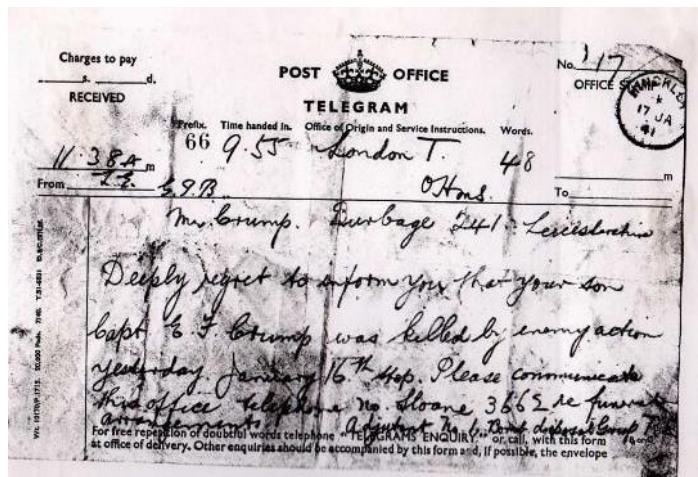 Charges to pay
s. d.
RECEIVED
POST OFFICE
TELEGRAM
No. 117
OFFICE STAMP
HINCKLEY
17 JA
41
Prefix. Time handed in. Office of Origin and Service Instructions. Words.
66 9.55 London T. 48
OHMS.
11.38A m
From T.E.
To
m
Mr Crump. Burbage 241. Leicestershire
Deeply regret to inform you that your son
Capt E F Crump was killed by enemy action
yesterday January 16th stop. Please communicate
this office telephone No. Sloane 3662 re funeral
arrangements Adjutant No 1. Bomb disposal Group
For free repetition of doubtful words telephone "TELEGRAMS ENQUIRY" or call, with this form
at office of delivery. Other enquiries should be accompanied by this form and, if possible, the envelope